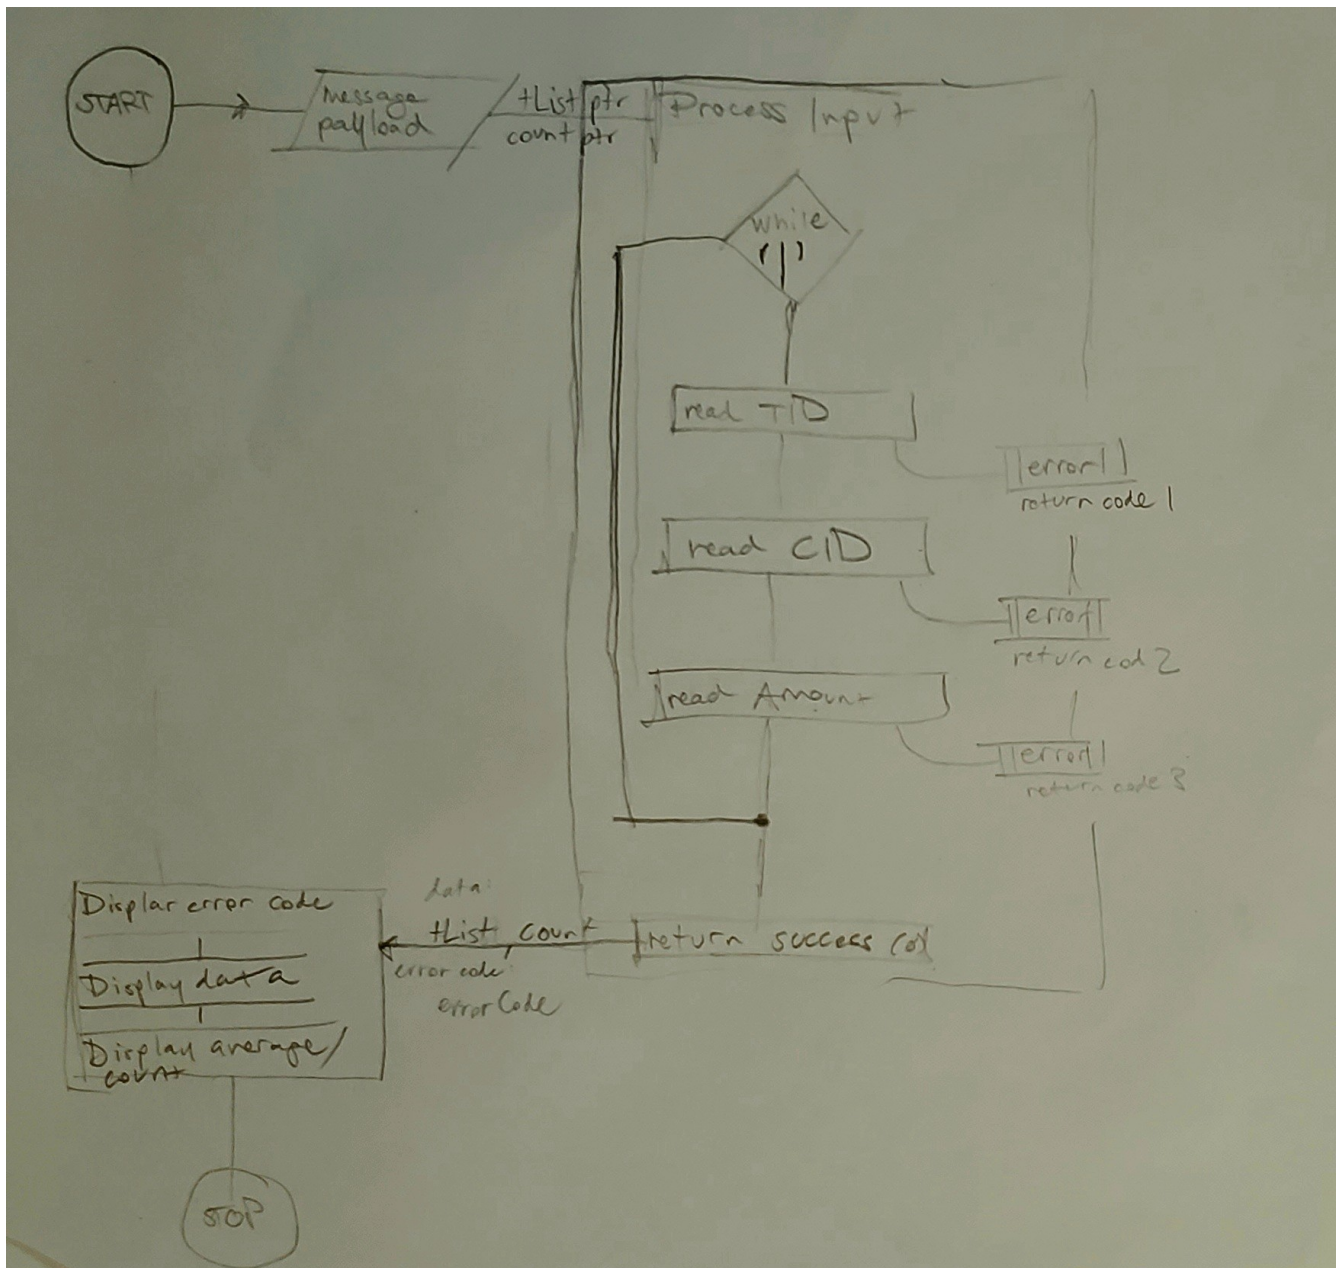 START
message
payload
tList ptr
count ptr
Process Input
while
(|)
read TID
error
return code 1
read CID
error
return cod 2
read Amount
error
return code 3
data:
tList, count
error code:
errorCode
return success (0)
Displar error code
Display data
Display average/
count
STOP